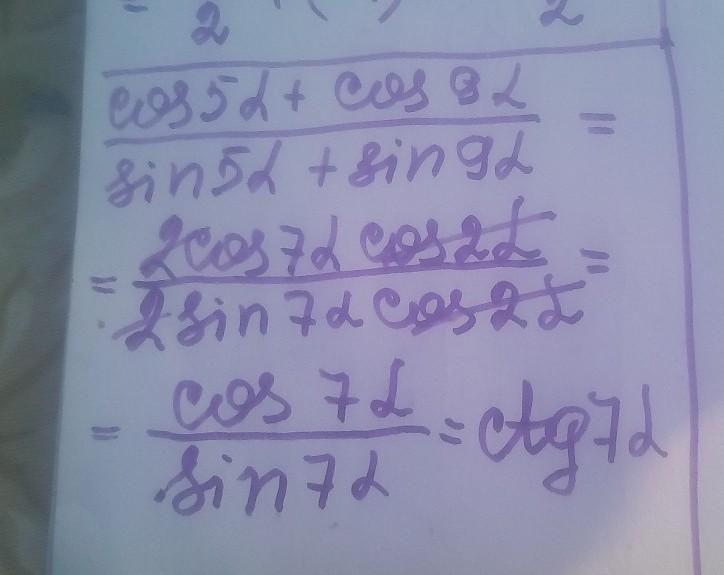 2 2
cos5α + cos 9α =
sin5α + sin9α
= 2cos7α cos2α =
2sin7α cos2α
= cos 7α = ctg7α
sin7α